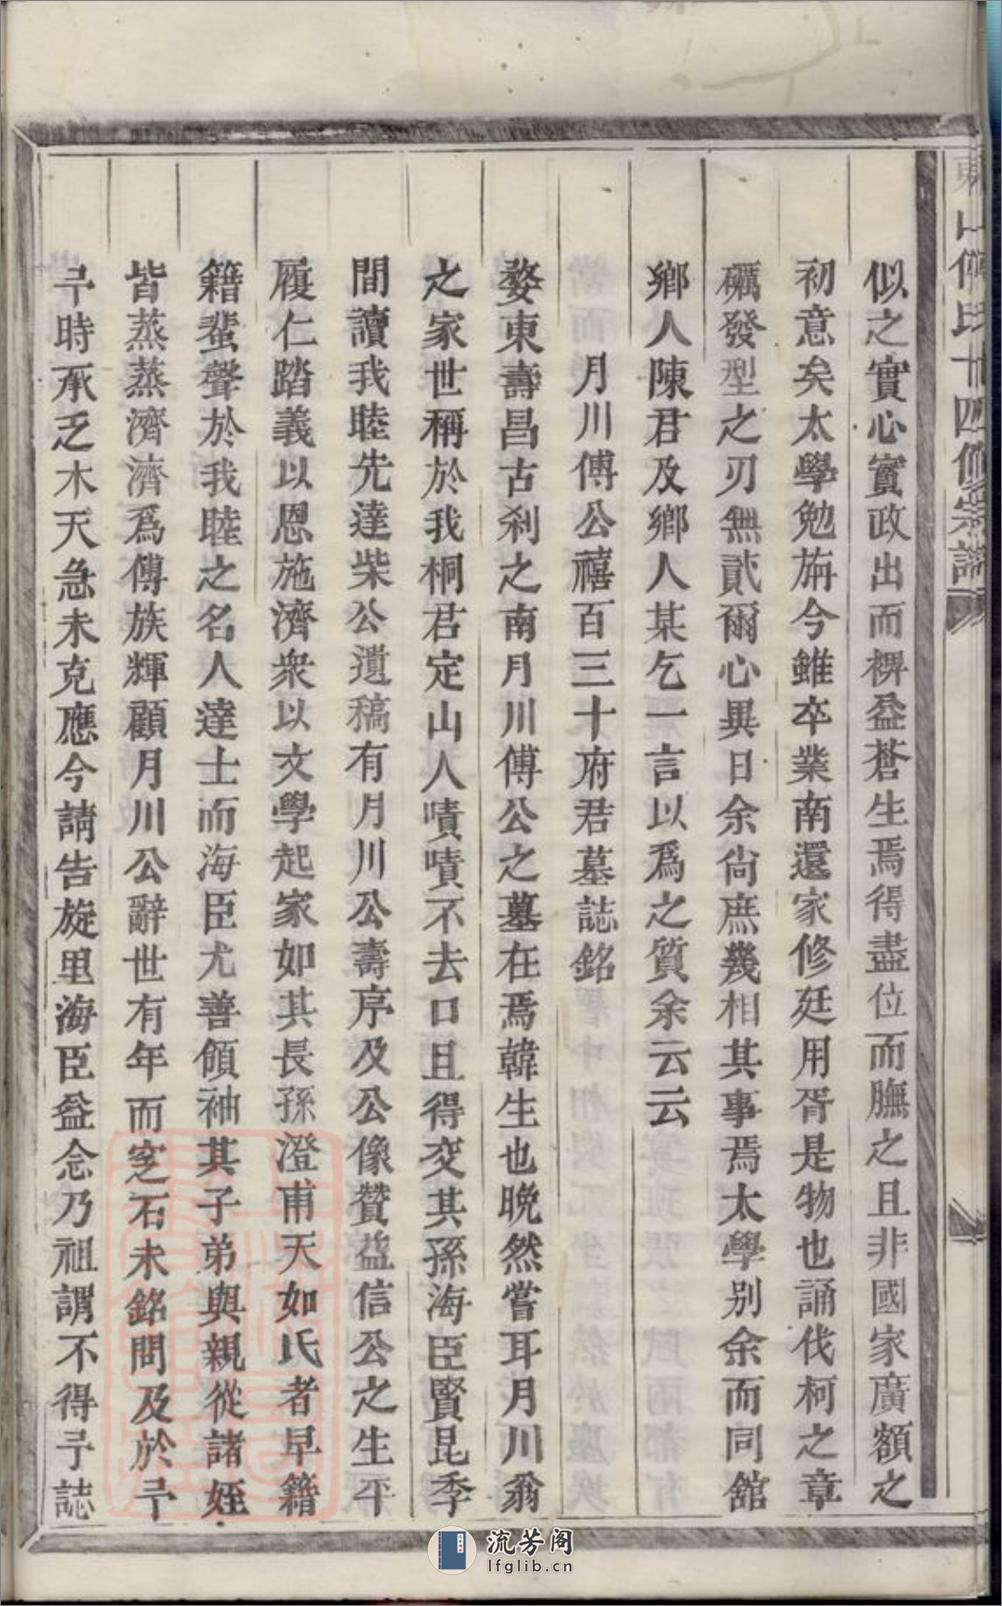 似之實心實政出而裨益蒼生焉得盡位而膴之且非國家廣額之
初意矣太學勉旃今雖卒業南還家修廷用胥是物也誦伐柯之章
礪發型之刃無貳爾心異日余尙庶幾相其事焉太學別余而同舘
鄉人陳君及鄉人某乞一言以爲之質余云云
月川傅公禧百三十府君墓誌銘
婺東壽昌古刹之南月川傅公之墓在焉韓生也晚然嘗耳月川翁
之家世稱於我桐君定山人嘖嘖不去口且得交其孫海臣賢昆季
間讀我睦先達柴公遺稿有月川公壽序及公像贊益信公之生平
履仁踏義以恩施濟衆以文學起家如其長孫澄甫天如氏者早籍
籍蜚聲於我睦之名人達士而海臣尤善領袖其子弟與親從諸姪
皆蒸蒸濟濟爲傅族輝顧月川公辭世有年而窆石未銘問及於予
予時承乏木天急未克應今請告旋里海臣益念乃祖謂不得予誌
東山傅氏廿四修宗譜
流芳阁
lfglib.cn